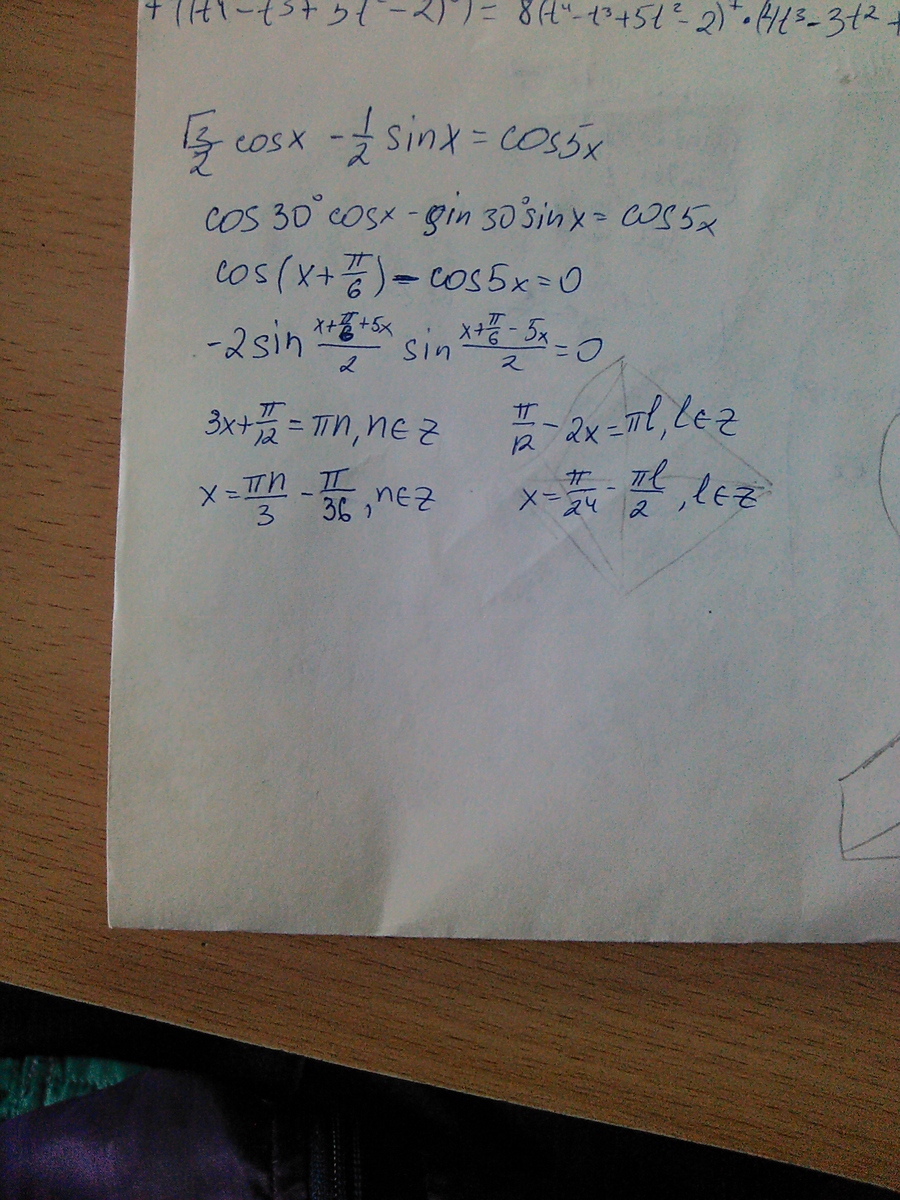 +((t⁴-t³+5t²-2)⁸) = 8(t⁴-t³+5t²-2)⁷·(4t³-3t²+
√3/2 cosx - 1/2 sinx = cos5x
cos30°cosx - sin30°sinx = cos5x
cos(x+π/6) - cos5x = 0
-2sin (x+π/6+5x)/2 sin (x+π/6-5x)/2 = 0
3x+π/12 = πn, n∈z π/12 - 2x = πl, l∈z
x = πn/3 - π/36, n∈z x = π/24 - πl/2, l∈z